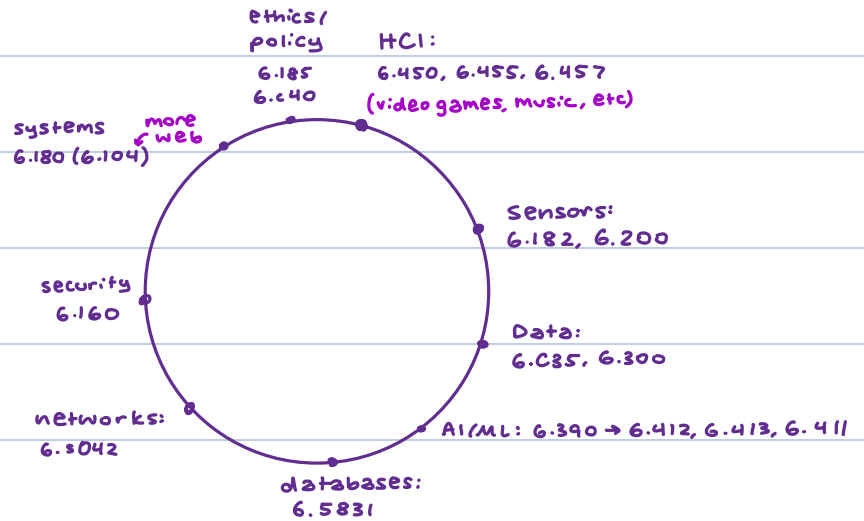 ethics/
policy
6.185
6.c40
HCI:
6.450, 6.455, 6.457
(video games, music, etc)
more
web
systems
6.180 (6.104)
sensors:
6.182, 6.200
security
6.160
Data:
6.C35, 6.300
networks:
6.s042
AI/ML: 6.390 → 6.412, 6.413, 6.411
databases:
6.5831